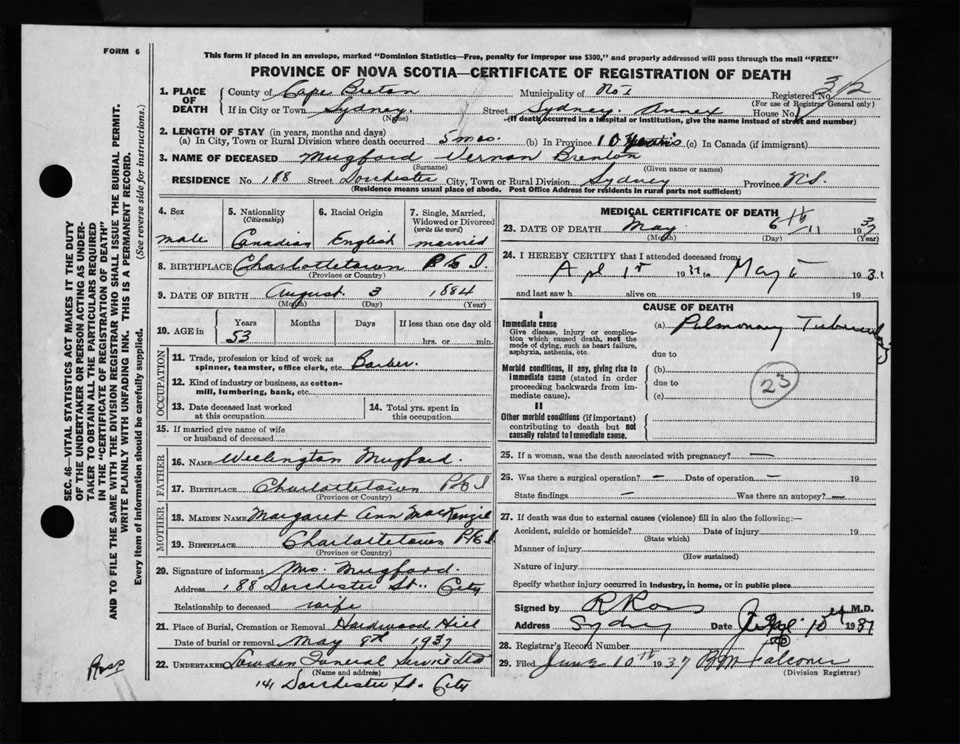 FORM 6
This form if placed in an envelope, marked "Dominion Statistics—Free, penalty for improper use $300," and properly addressed will pass through the mail "FREE"
PROVINCE OF NOVA SCOTIA—CERTIFICATE OF REGISTRATION OF DEATH
1. PLACE OF DEATH County of Cape Breton Municipality of No 1 Registered No. 312
(For use of Registrar General only)
If in City or Town Sydney. Street Sydney Annex House No.
(Name) (If death occurred in a hospital or institution, give the name instead of street and number)
2. LENGTH OF STAY (in years, months and days)
(a) In City, Town or Rural Division where death occurred 5 mos. (b) In Province 10 (c) In Canada (if immigrant)
3. NAME OF DECEASED Mugford Vernan Brenton
(Surname) (Given name or names)
RESIDENCE No. 188 Street Dorchester City, Town or Rural Division Sydney Province N.S.
(Residence means usual place of abode. Post Office Address for residents in rural parts not sufficient)
4. Sex 5. Nationality (Citizenship) 6. Racial Origin 7. Single, Married, Widowed or Divorced (write the word)
male Canadian English married
8. BIRTHPLACE Charlottetown P.E.I
(Province or Country)
9. DATE OF BIRTH August 3 1884
(Month) (Day) (Year)
10. AGE in Years Months Days If less than one day old
53 hrs. or min.
OCCUPATION
11. Trade, profession or kind of work as spinner, teamster, office clerk, etc. Barber.
12. Kind of industry or business, as cotton-mill, lumbering, bank, etc.
13. Date deceased last worked at this occupation
14. Total yrs. spent in this occupation
15. If married give name of wife or husband of deceased
FATHER
16. NAME Wellington Mugford.
17. BIRTHPLACE Charlottetown P.E.I
(Province or Country)
MOTHER
18. MAIDEN NAME Margaret Ann MacKenzie
19. BIRTHPLACE Charlottetown P.E.I.
(Province or Country)
20. Signature of informant Mrs. Mugford.
Address 188 Dorchester St. City
Relationship to deceased wife
21. Place of Burial, Cremation or Removal Hardwood Hill
Date of burial or removal May 8th 1937
22. UNDERTAKER Lowden Funeral Service Ltd
(Name and address)
141 Dorchester St. City
MEDICAL CERTIFICATE OF DEATH
23. DATE OF DEATH May 6th 1937
(Month) (Day) (Year)
24. I HEREBY CERTIFY that I attended deceased from:
Apl 1st 19 to May 6 193
and last saw h alive on 19
CAUSE OF DEATH
I
Immediate cause
Give disease, injury or complication which caused death, not the mode of dying, such as heart failure, asphyxia, asthenia, etc.
(a) Pulmonary Tuberculosis
due to
Morbid conditions, if any, giving rise to immediate cause (stated in order proceeding backwards from immediate cause).
(b)
due to
(c)
23
II
Other morbid conditions (if important) contributing to death but not causally related to immediate cause.
25. If a woman, was the death associated with pregnancy? —
26. Was there a surgical operation? — Date of operation — 19
State findings — Was there an autopsy? —
27. If death was due to external causes (violence) fill in also the following:—
Accident, suicide or homicide? Date of injury 19
(State which)
Manner of injury
(How sustained)
Nature of injury
Specify whether injury occurred in industry, in home, or in public place
Signed by R Ross M.D.
Address Sydney Date 10th 1937
28. Registrar's Record Number
29. Filed June 10th 1937 B.M. Falconer
(Division Registrar)
SEC. 46—VITAL STATISTICS ACT MAKES IT THE DUTY
OF THE UNDERTAKER OR PERSON ACTING AS UNDER-
TAKER TO OBTAIN ALL THE PARTICULARS REQUIRED
IN THE "CERTIFICATE OF REGISTRATION OF DEATH"
AND TO FILE THE SAME WITH THE DIVISION REGISTRAR WHO SHALL ISSUE THE BURIAL PERMIT.
WRITE PLAINLY WITH UNFADING INK. THIS IS A PERMANENT RECORD.
Every item of information should be carefully supplied. (See reverse side for instructions.)